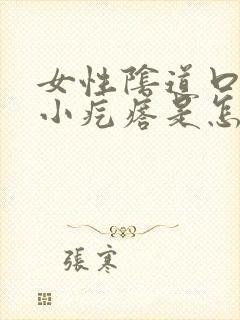 女性陰道口
小疙瘩是怎
張寒